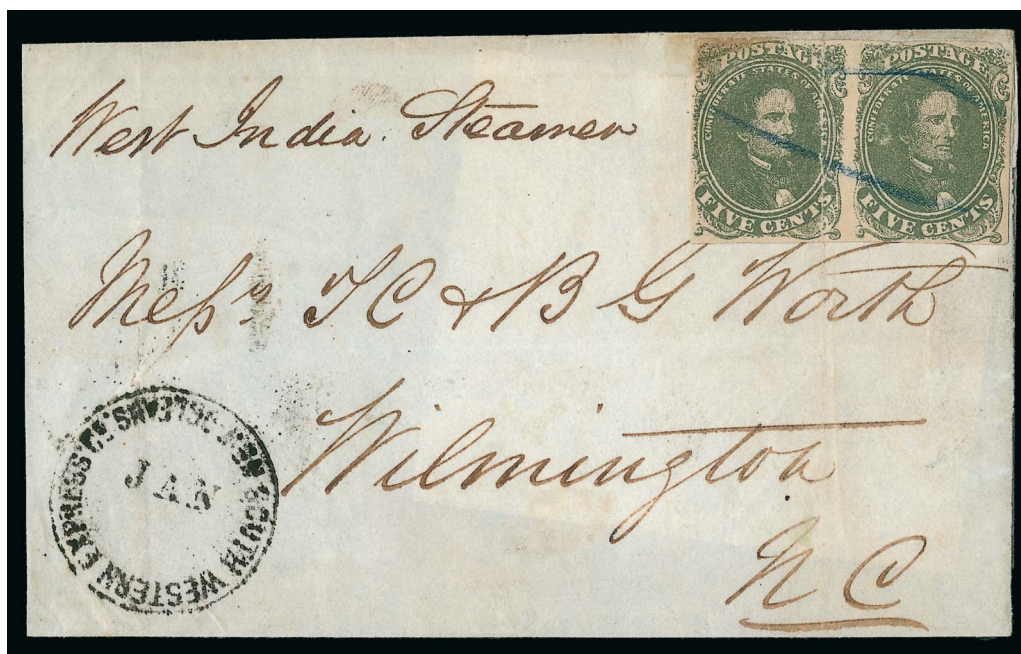 West India Steamer
POSTAGE
CONFEDERATE STATES OF AMERICA
FIVE CENTS
POSTAGE
CONFEDERATE STATES OF AMERICA
FIVE CENTS
Messrs T C & B G Worth
Wilmington
N C
SOUTH WESTERN EXPRESS Co. NEW ORLEANS
JAN